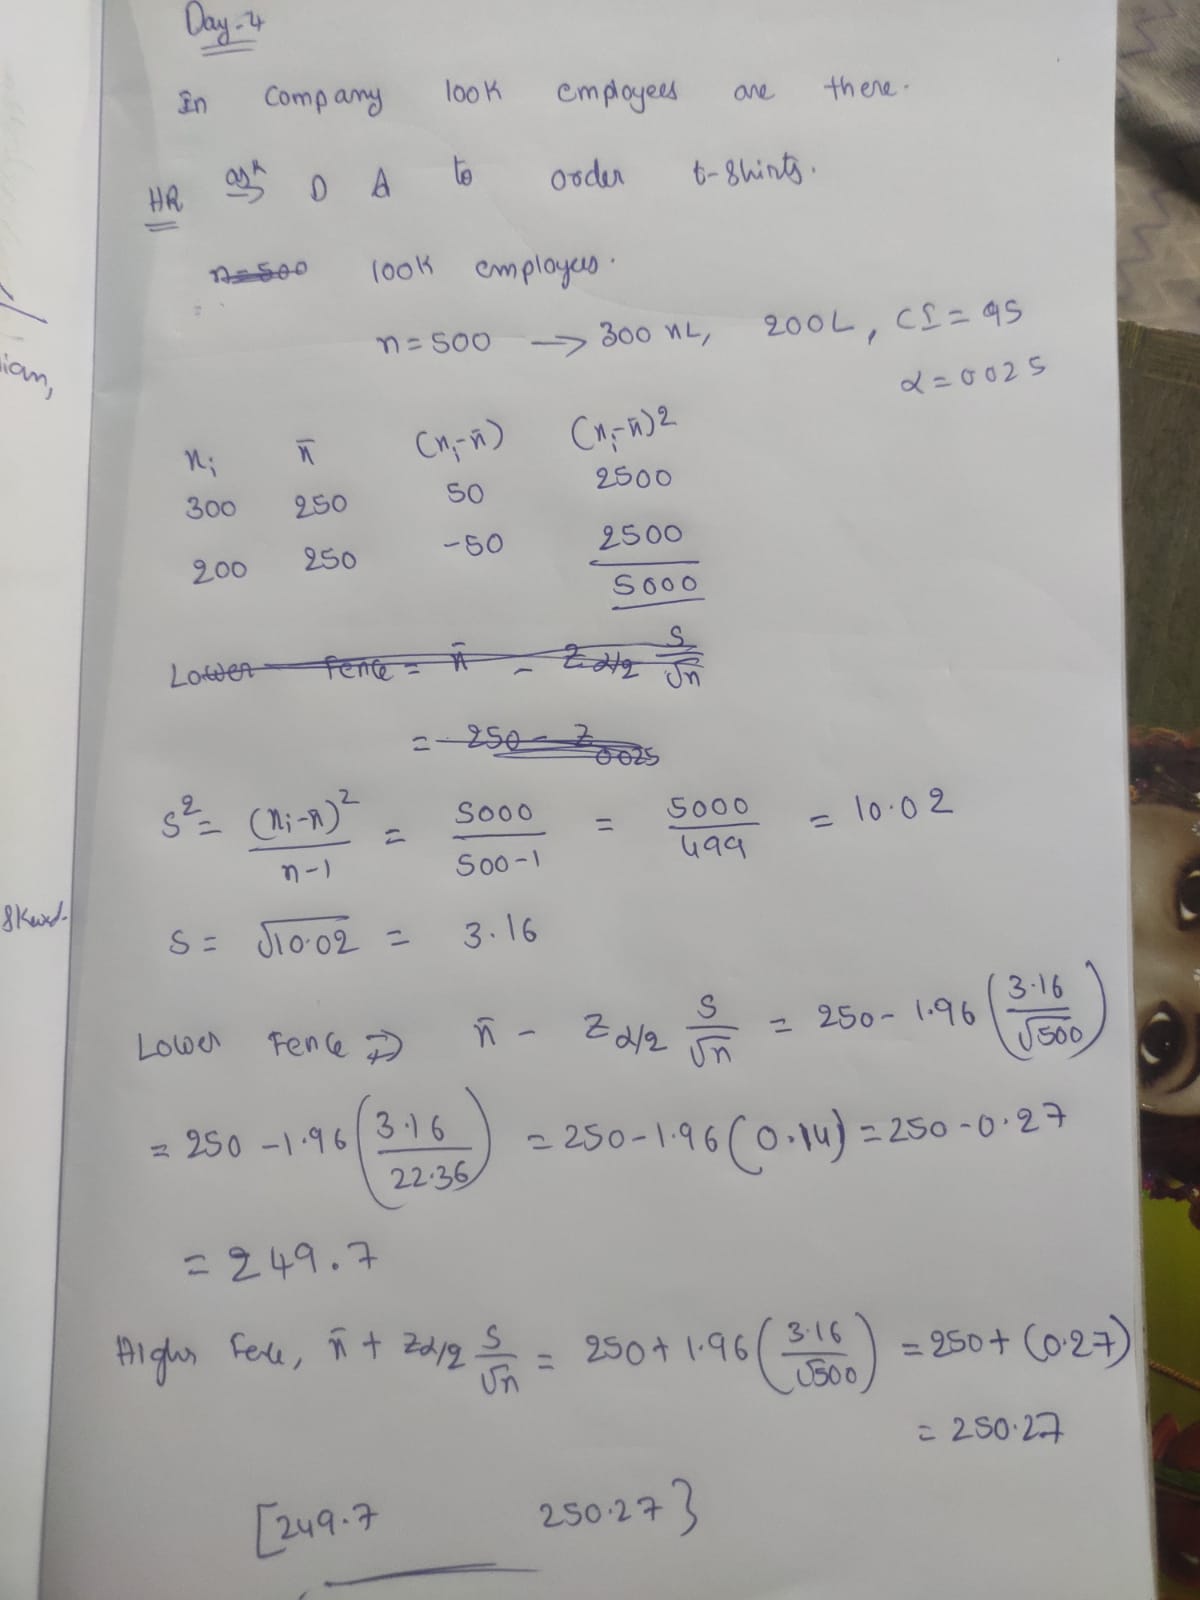 Day-4
In Company 100K employees are there.
HR ask D A to order t-Shirts.
n=500 100K employees.
n=500 → 300 XL, 200L, CI=95
α=0025
xi x̄ (xi-x̄) (xi-x̄)2
300 250 50 2500
200 250 -50 2500
5000
Lower Fence = x̄ - Zα/2 S/√n
= 250 - Z0025
S²= (xi-x̄)²/n-1 = 5000/500-1 = 5000/499 = 10.02
S= √10.02 = 3.16
Lower Fence ⇒ x̄ - Zα/2 S/√n = 250 - 1.96 (3.16/√500)
= 250 -1.96 (3.16/22.36) = 250-1.96 (0.14) = 250-0.27
= 249.7
x̄ + Zα/2 S/√n = 250+1.96 (3.16/√500) = 250+(0.27)
= 250.27
[249.7 250.27}
ian,
Skewd.